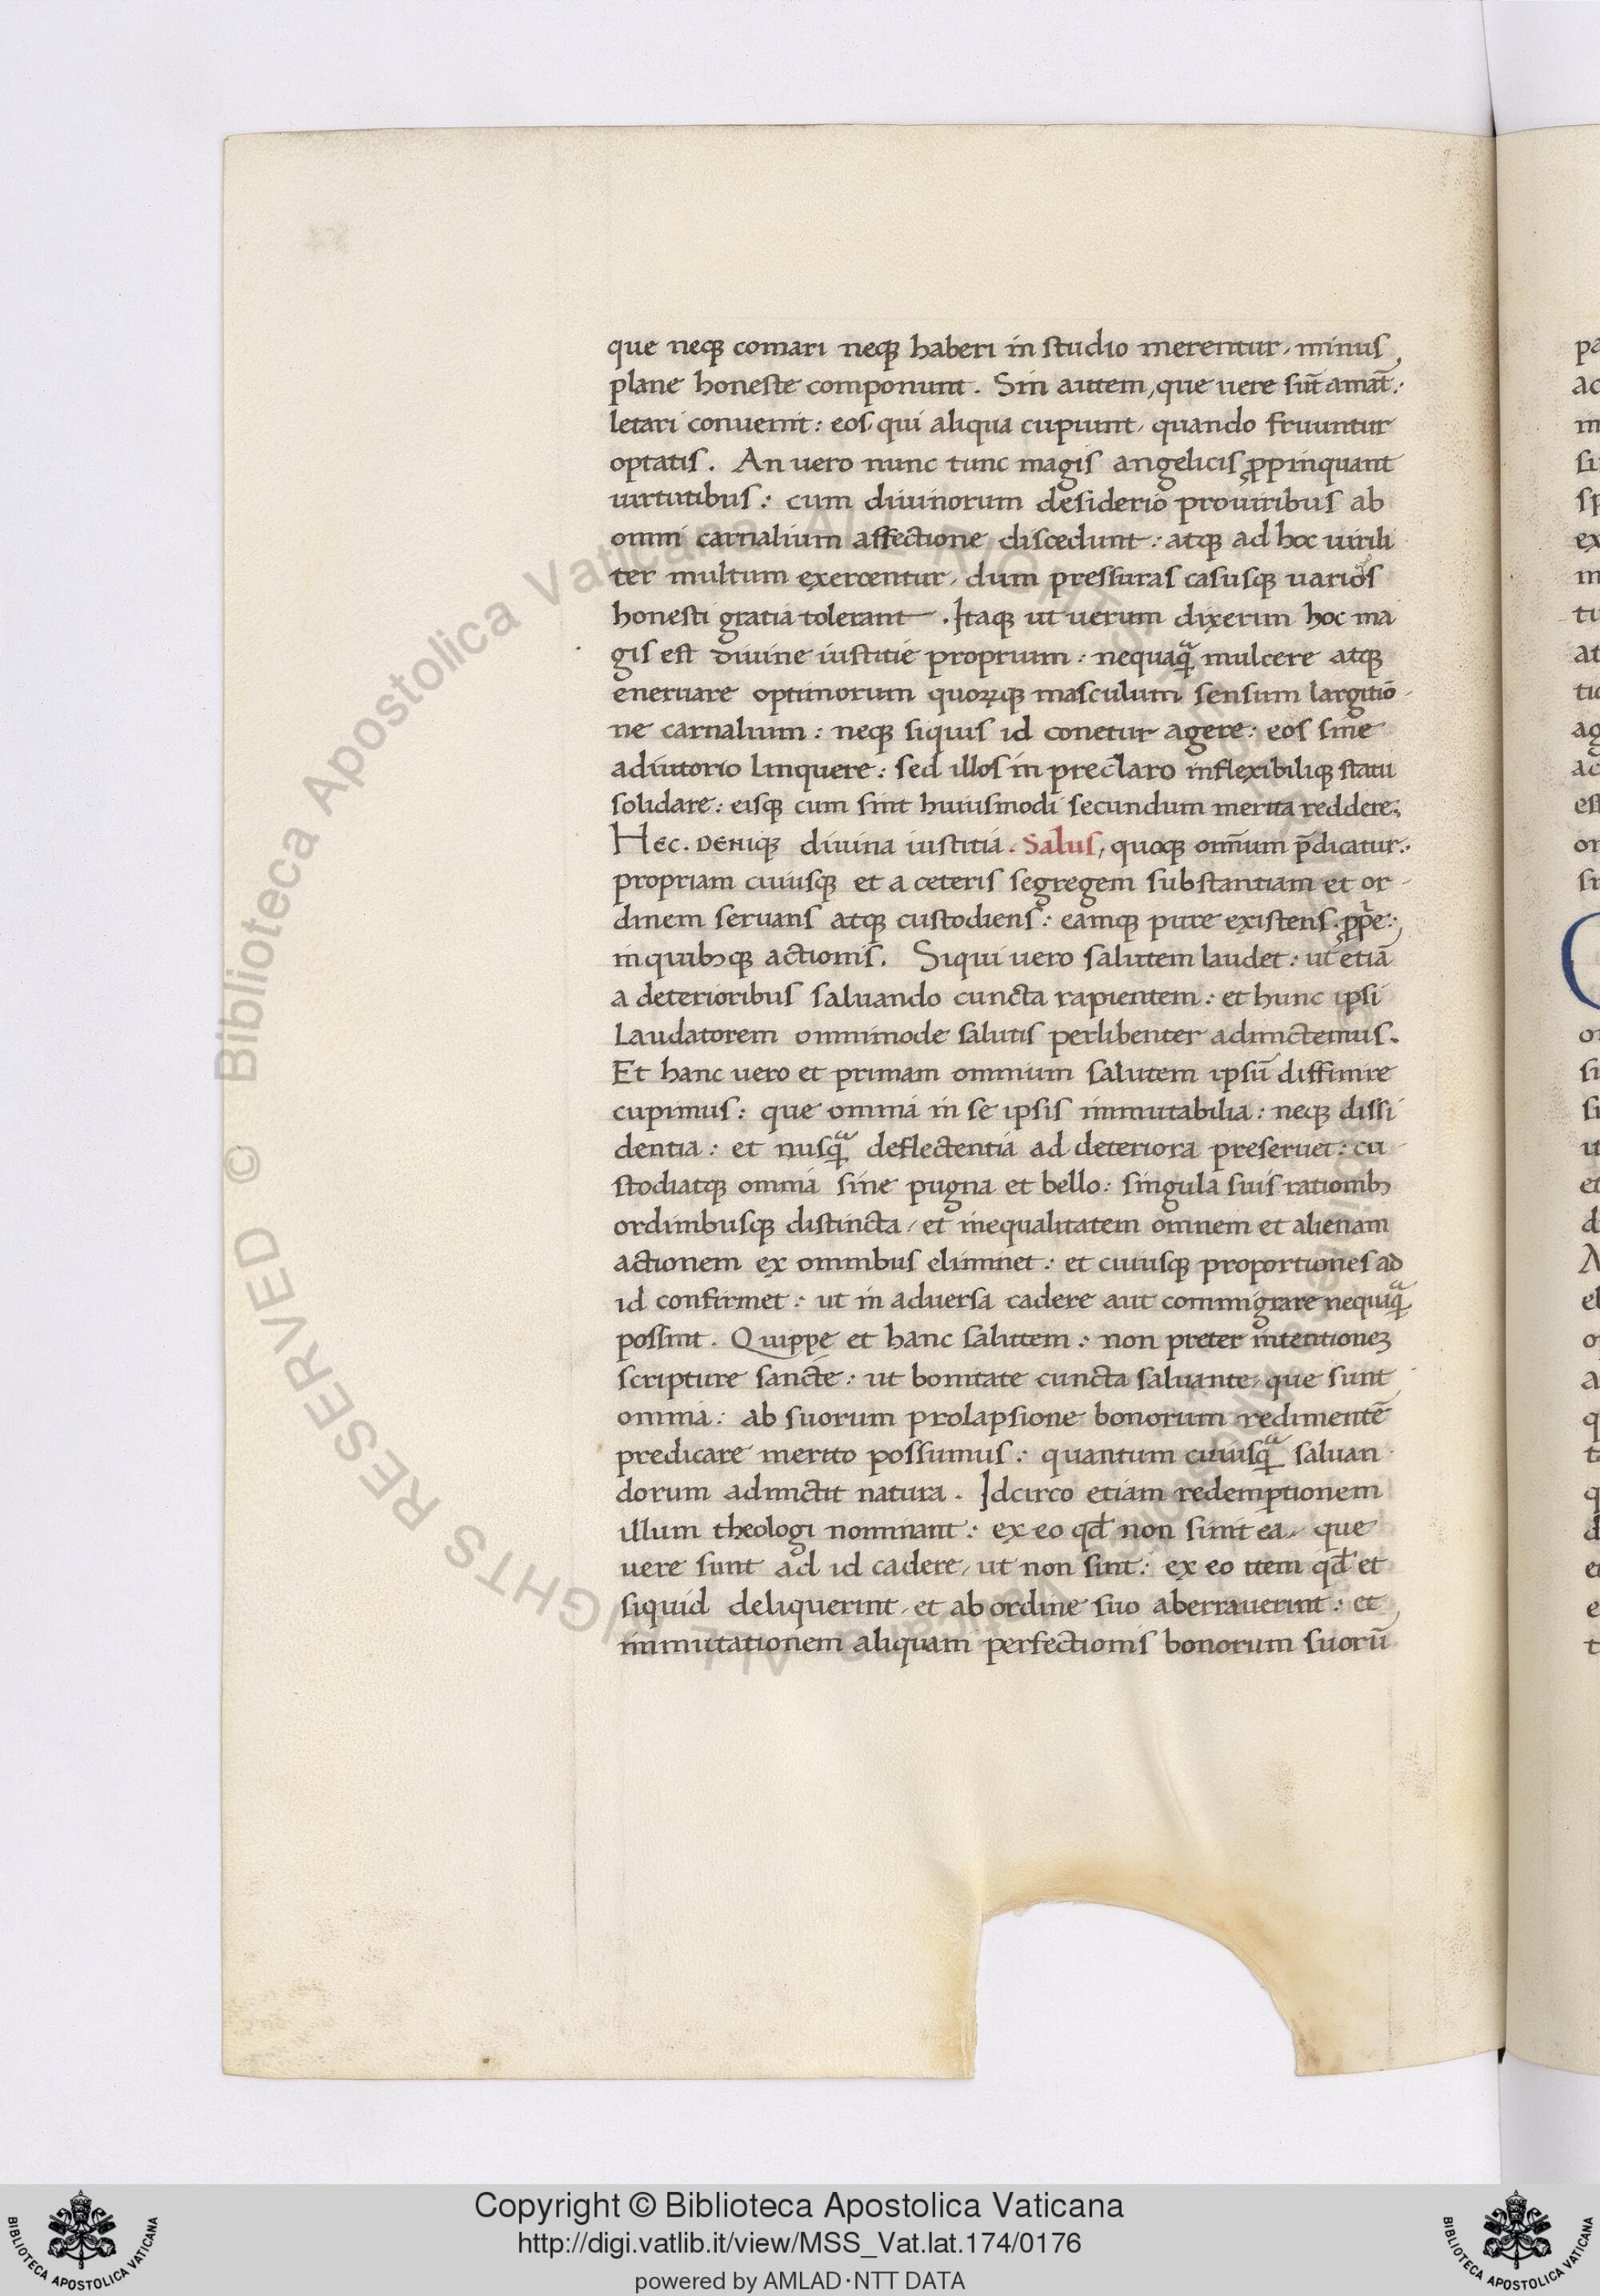 que neqꝫ comari neqꝫ haberi in studio merentur, minus
plane honeste componunt. Sin autem, que uere sūt amāt:
letari conuenit: eos, qui aliqua cupiunt, quando fruuntur
optatis. An uero nunc tunc magis angelicis ꝓpinquant
uirtutibus: cum diuinorum desiderio proviribus ab
omni carnalium affectione discedunt: atqꝫ ad hoc uirili
ter multum exercentur, dum pressuras casusqꝫ uarios
honesti gratia tolerant. Itaqꝫ ut uerum dixerim hoc ma
gis est diuine iustitie proprium: nequaqᷓ mulcere atqꝫ
eneruare optimorum quoꝝqꝫ masculum sensum largitio
ne carnalium: neqꝫ siquis id conetur agere: eos sine
adiutorio linquere: sed illos in preclaro inflexibiliqꝫ statu
solidare: eisqꝫ cum sint huiusmodi secundum merita reddere;
Hec. Deniqꝫ diuina iustitia. Salus, quoqꝫ omn̄ium p̄dicatur:
propriam cuiusqꝫ et a ceteris segregem substantiam et or
dinem seruans atqꝫ custodiens: eamqꝫ pure existens. 
inquibꝫqꝫ actionis. Siqui uero salutem laudet: ut etiā
a deterioribus saluando cuncta rapientem: et hunc ipsi
Laudatorem omnimode salutis perlibenter admictemus.
Et hanc uero et primam omnium salutem ipsū diffinire
cupimus: que omnia in se ipsis immutabilia: neqꝫ dissi
dentia: et nusqᷓ deflectentia ad deteriora preseruet: cu
stodiatqꝫ omnia sine pugna et bello: singula suis rationibꝫ
ordinibusqꝫ distincta, et inequalitatem omnem et alienam
actionem ex omnibus eliminet: et cuiusqꝫ proportiones ad
id confirmet: ut in aduersa cadere aut commigrare nequaqᷓ
possint. Quippe et hanc salutem: non preter intentioneꝫ
scripture sancte: ut bonitate cuncta saluante, que sunt
omnia: ab suorum prolapsione bonorum redimentē
predicare merito possumus: quantum cuiusqᷓ saluan
dorum admictit natura. Idcirco etiam redemptionem
illum theologi nominant: ex eo qd̄ non sinit ea, que
uere sunt ad id cadere, ut non sint: ex eo item qd̄ et
siquid deliquerint, et ab ordine suo aberrauerint: et
immutationem aliquam perfectionis bonorum suorū
Copyright © Biblioteca Apostolica Vaticana
http://digi.vatlib.it/view/MSS_Vat.lat.174/0176
powered by AMLAD·NTT DATA